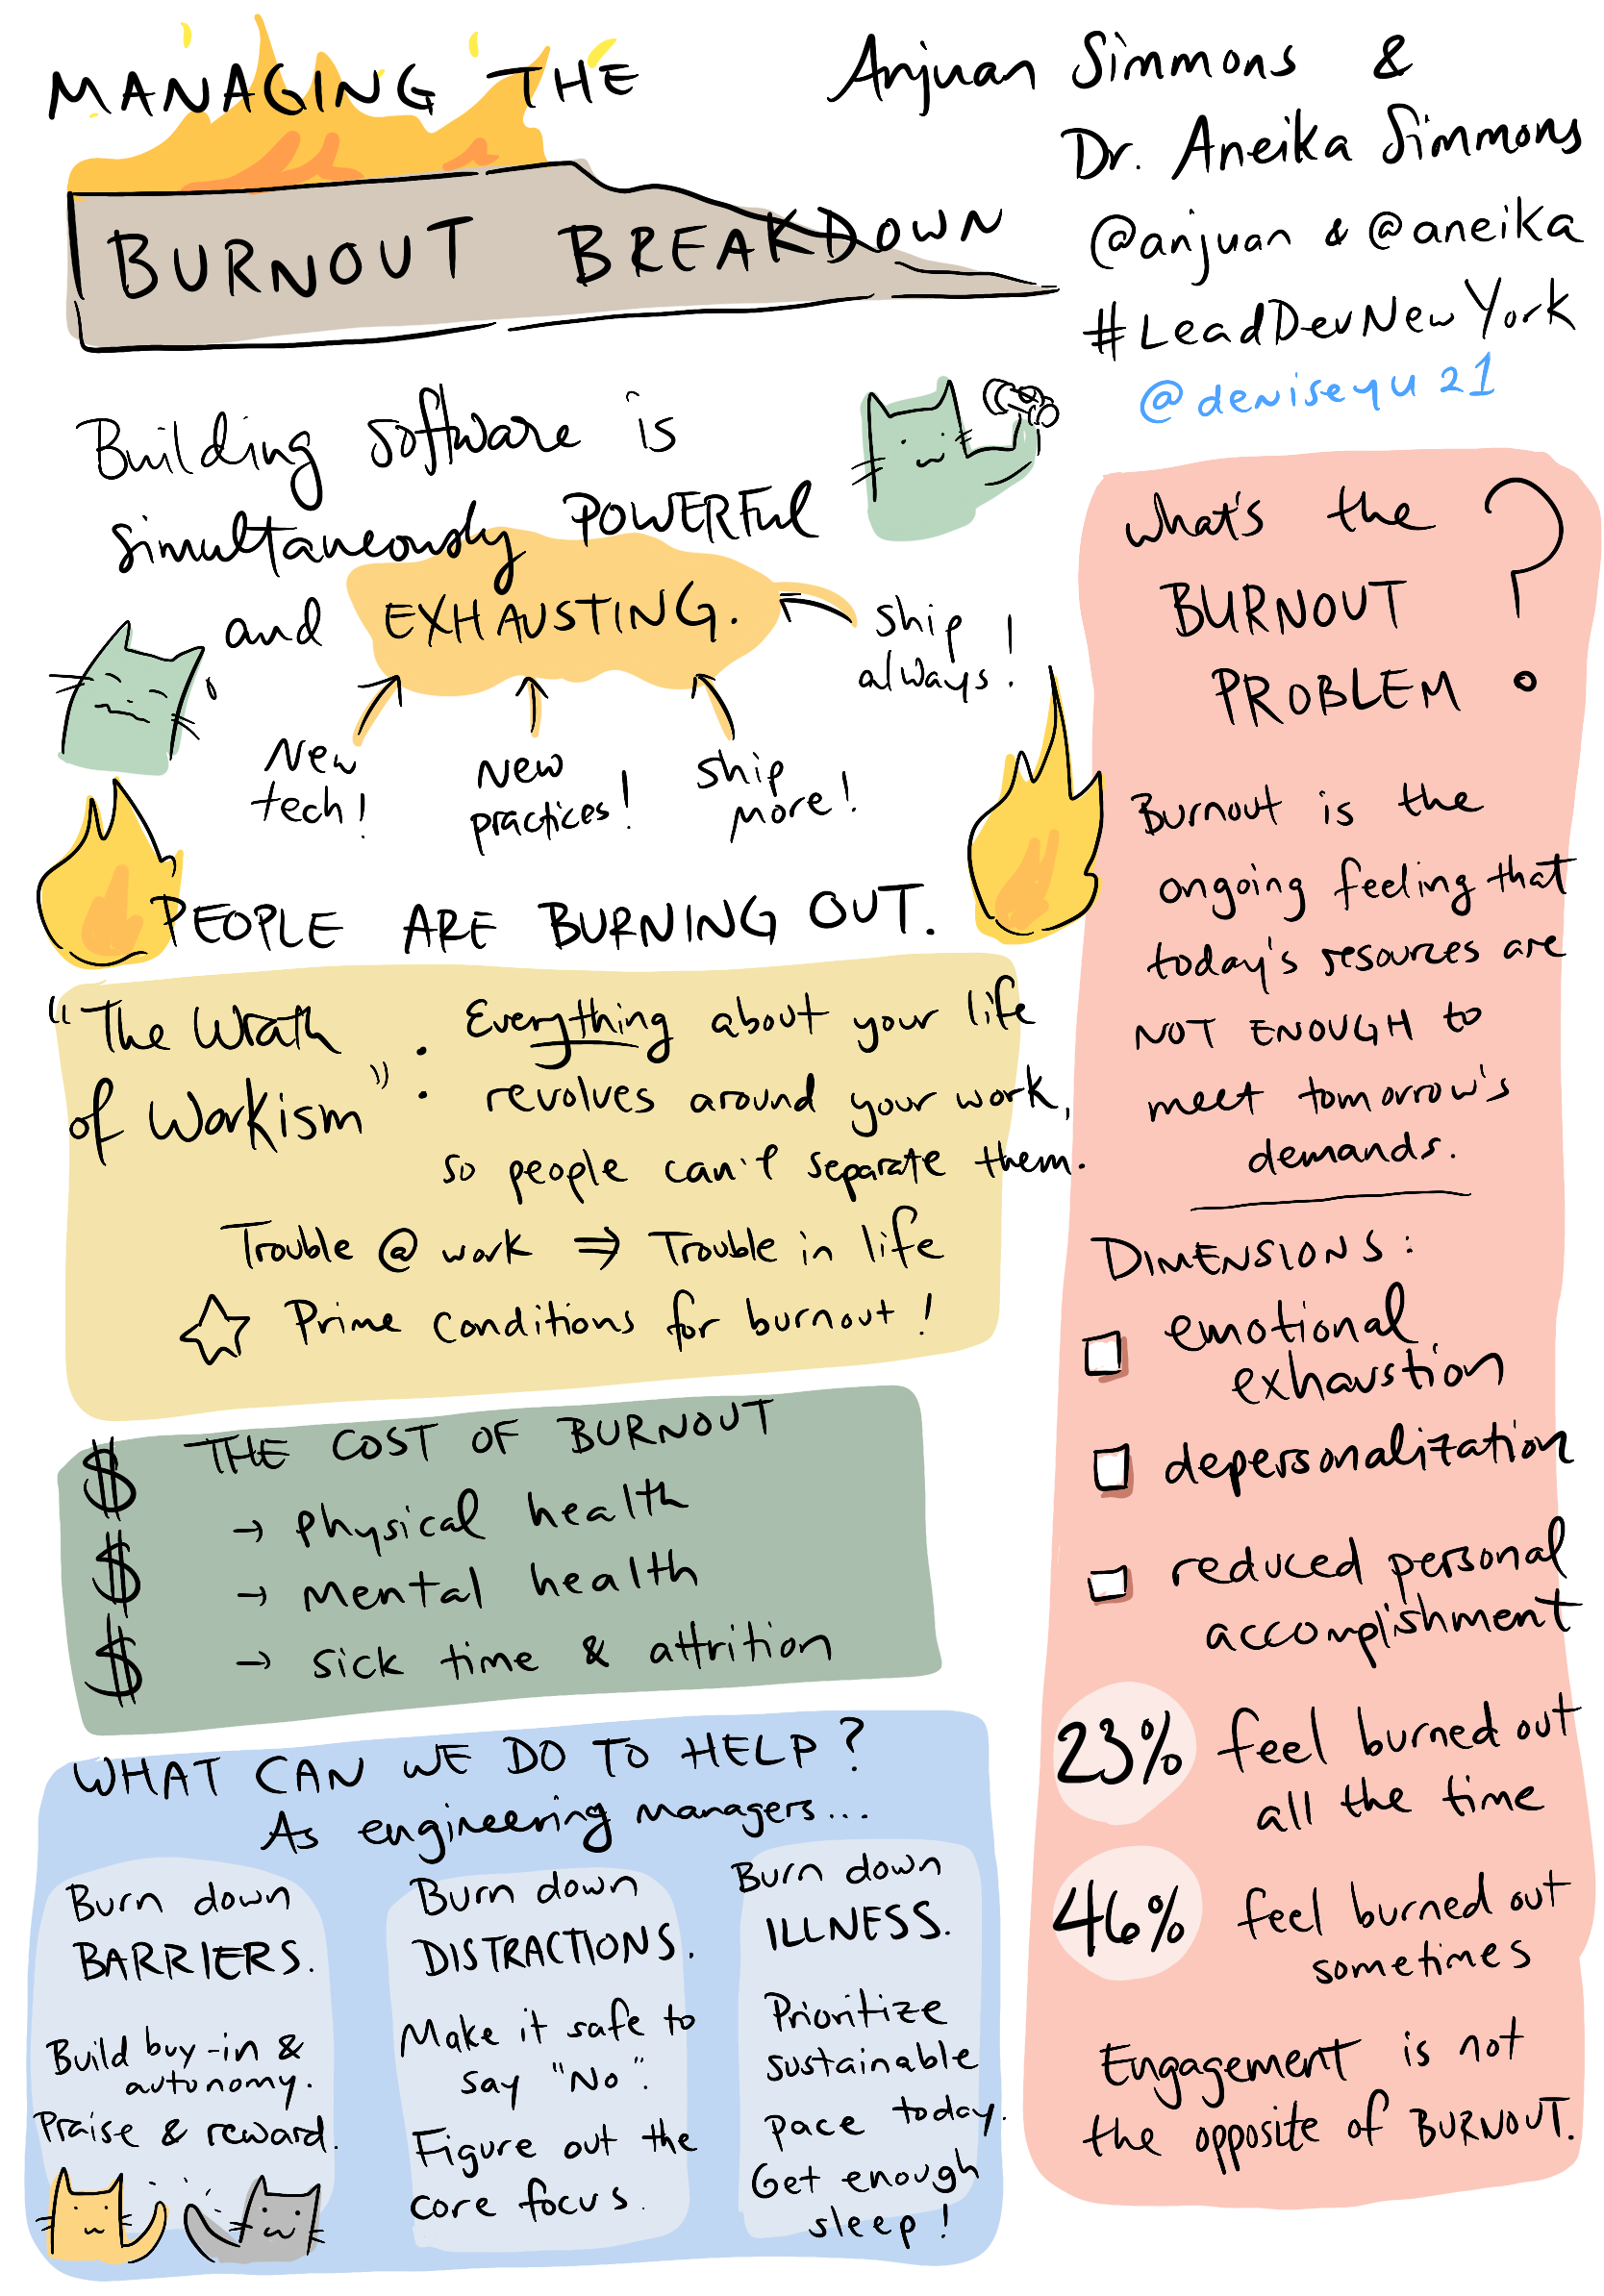 MANAGING THE
BURNOUT BREAKDOWN
Anjuan Simmons &
Dr. Aneika Simmons
@anjuan & @aneika
#LeadDevNewYork
@deniseyu21
Building software is
simultaneously POWERFUL
and EXHAUSTING.
New
tech!
New
practices!
ship
more!
ship
always!
PEOPLE ARE BURNING OUT.
"The Wrath
of Workism" :
Everything about your life
revolves around your work,
so people can't separate them.
Trouble @ work ⇒ Trouble in life
☆ Prime conditions for burnout!
$ THE COST OF BURNOUT
→ physical health
$ → mental health
$ → sick time & attrition
WHAT CAN WE DO TO HELP?
As engineering managers...
Burn down
BARRIERS.
Build buy-in &
autonomy.
Praise & reward.
Burn down
DISTRACTIONS.
Make it safe to
say "No".
Figure out the
core focus.
Burn down
ILLNESS.
Prioritize
sustainable
pace today.
Get enough
sleep!
What's the
BURNOUT
PROBLEM?
Burnout is the
ongoing feeling that
today's resources are
NOT ENOUGH to
meet tomorrow's
demands.
DIMENSIONS:
emotional
exhaustion
depersonalization
reduced personal
accomplishment
23% feel burned out
all the time
46% feel burned out
sometimes
Engagement is not
the opposite of BURNOUT.